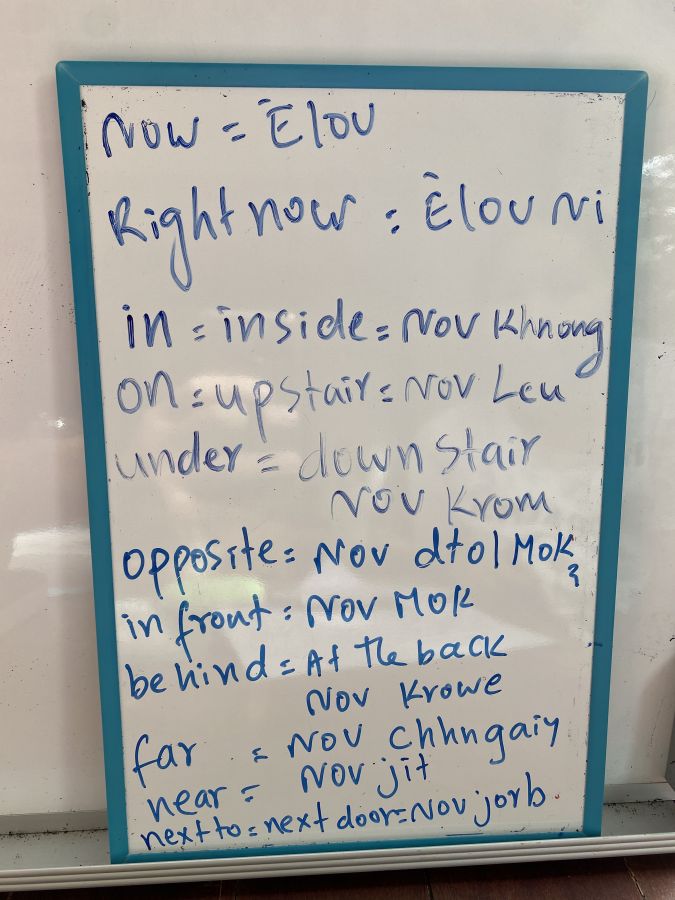 Now = Ēlov
Right now : Èlov Ni
in = inside = Nov Khnong
on = upstair = Nov Leu
under = down stair
Nov Krom
opposite = Nov dtol Mok
in front : Nov Mok
behind = At the back
Nov Krowe
far = Nov Chhngaiy
near = Nov jit
next to = next door = Nov jorb.